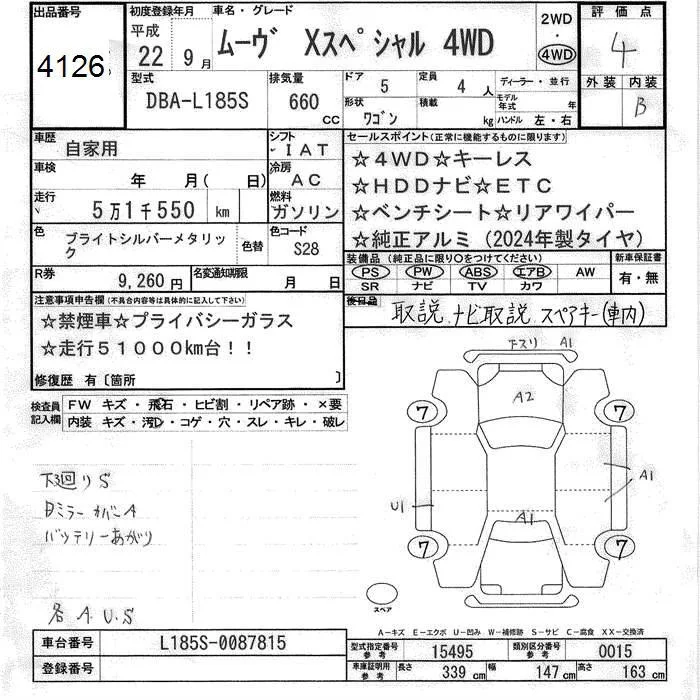 出品番号 初度登録年月 車名・グレード 2WD 評価点
4126 平成 22 年 9 月 ムーヴ Xスペシャル 4WD ・ 4WD 4
型式 排気量 ドア 定員 ディーラー・並行 外装 内装
DBA-L185S 660 CC 5 4 人 モデル年式 年 B
形状 積載 ハンドル 左・右
ワゴン kg
車歴 自家用 シフト IAT
車検 年 月( 日) 冷房 AC
走行 5万1千550 km 燃料 ガソリン
色 ブライトシルバーメタリック 色替 色コード S28
R券 9,260 円 名変通知期限 月 日
セールスポイント(正常に機能するものに限ります)
☆4WD☆キーレス
☆HDDナビ☆ETC
☆ベンチシート☆リアワイパー
☆純正アルミ(2024年製タイヤ)
装備品(純正品に限り○をつけてください) 新車保証書
PS PW ABS エアB AW 有・無
SR ナビ TV カワ
後日品 取説 ナビ取説 スペアキー(車内)
注意事項申告欄(不具合内容等は具体的に記入して下さい)
☆禁煙車☆プライバシーガラス
☆走行51000km台!!
修復歴 有〔箇所 〕
検査員記入欄 FW キズ・飛石・ヒビ割・リペア跡・×要
内装 キズ・汚れ・コゲ・穴・スレ・キレ・破レ
下廻りS
Bミラーカバー A
バッテリーあがり
各 A.U.S
下スリ A1
A2
7 7
A1
U1
A1
7 7
スペア
A-キズ E-エクボ U-凹み W-補修跡 S-サビ C-腐食 XX-交換済
車台番号 L185S-0087815
登録番号
型式指定番号 参考 15495 類別区分番号 参考 0015
車庫証明用 参考 長さ 339 cm 幅 147 cm 高さ 163 cm